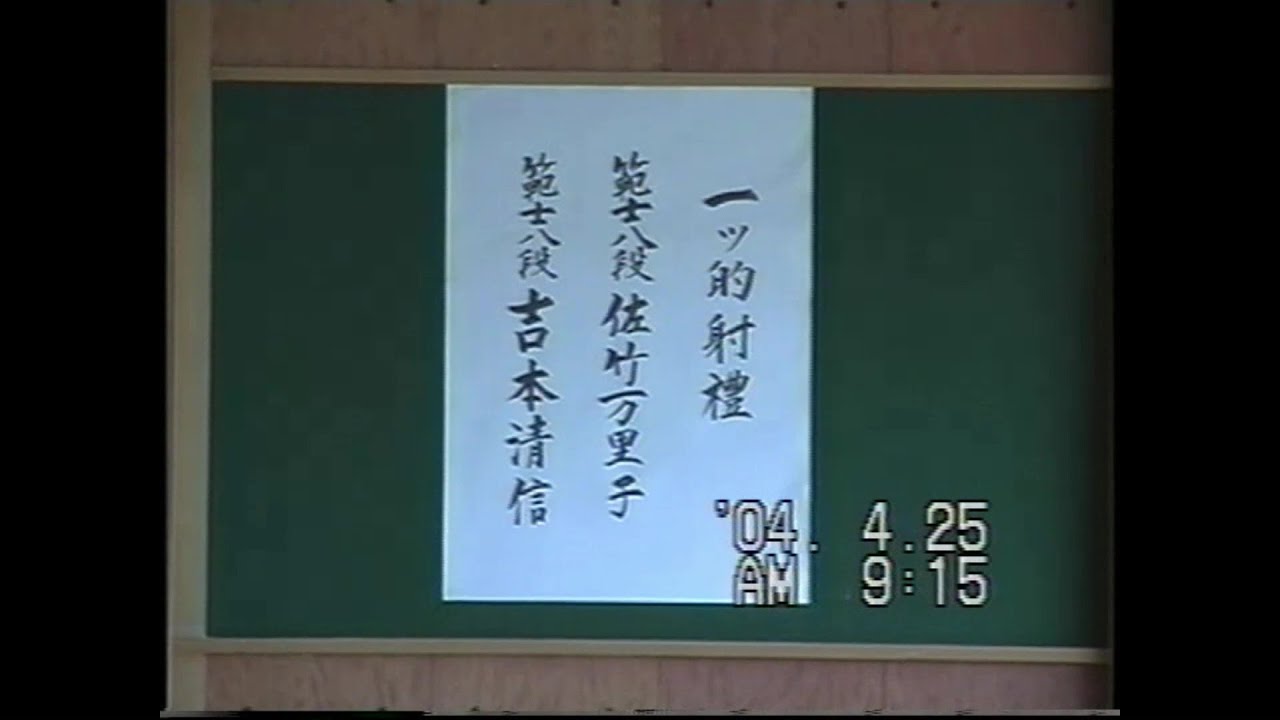 一ッ的射禮
範士八段 佐竹万里子
範士八段 吉本清信
'04. 4.25
AM 9:15